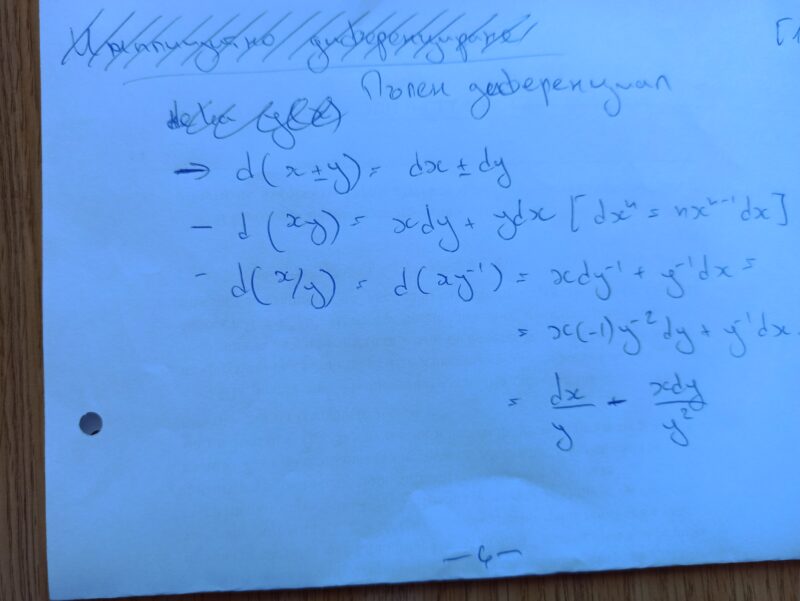 Имплицитно диференциране
[1
Пълен диференциал
→ d(x±y) = dx ± dy
- d(xy) = xdy + ydx [dxⁿ = nxⁿ⁻¹dx]
- d(x/y) = d(xy⁻¹) = xdy⁻¹ + y⁻¹dx =
= x(-1)y⁻²dy + y⁻¹dx
= dx/y - xdy/y²